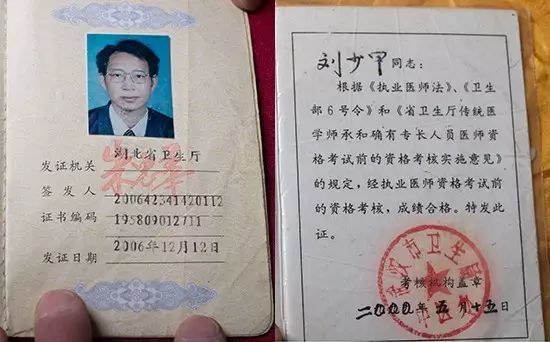 湖北省卫生厅
发证机关
签发人 200642341420112
证书编码 195809012711
发证日期 2006年12月12日
刘少甲同志：
根据《执业医师法》、《卫生
部6号令》和《省卫生厅传统医
学师承和确有专长人员医师资
格考试前的资格考核实施意见》
的规定，经执业医师资格考试前
的资格考核，成绩合格。特发此
证。
市卫生局
考核机构盖章
二000年五月十五日